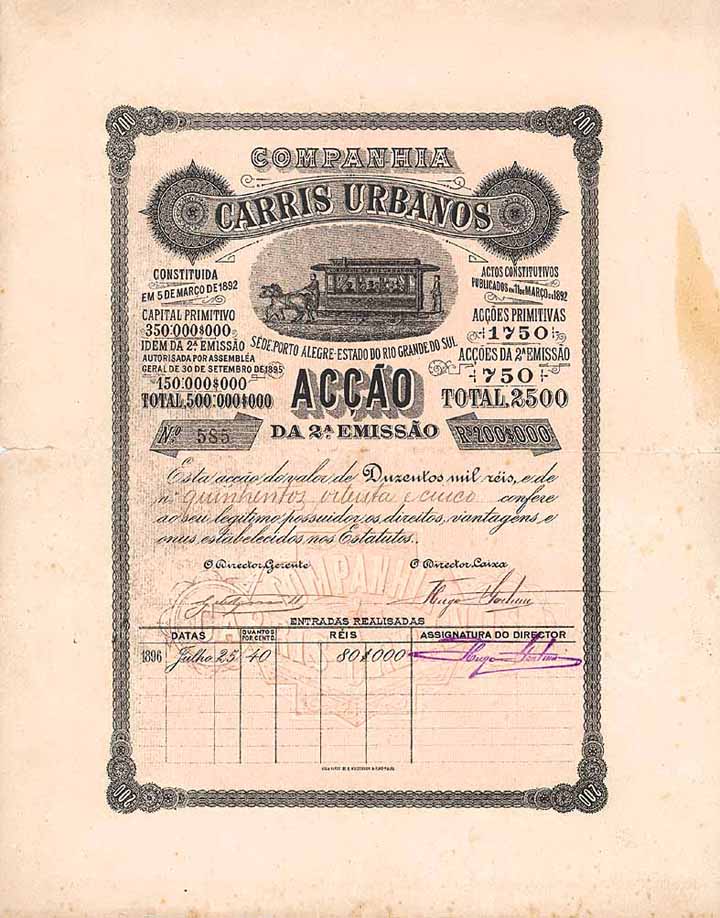 200
200
COMPANHIA
CARRIS URBANOS
CONSTITUIDA
EM 5 DE MARÇO DE 1892
CAPITAL PRIMITIVO
350:000$000
IDEM DA 2ª EMISSÃO
AUTORISADA POR ASSEMBLÉA
GERAL DE 30 DE SETEMBRO DE 1895
150:000$000
TOTAL, 500:000$000
ACTOS CONSTITUTIVOS
PUBLICADOS EM 11 DE MARÇO DE 1892
ACÇÕES PRIMITIVAS
1750
ACÇÕES DA 2ª EMISSÃO
750
TOTAL, 2500
SÉDE, PORTO ALEGRE-ESTADO DO RIO GRANDE DO SUL
ACÇÃO
DA 2ª EMISSÃO
Nº 585
Rs 200$000
Esta acção do valor de Duzentos mil réis, e de
nº quinhentos oitenta e cinco confere
ao seu legitimo possuidor os direitos, vantagens, e
onus, estabelecidos nos Estatutos.
O Director Gerente
O Director Caixa
Hugo
COMPANHIA
ENTRADAS REALISADAS
DATAS QUANTOS POR CENTO. RÉIS ASSIGNATURA DO DIRECTOR
1896 Julho 25 40 80$000 Hugo
200
200